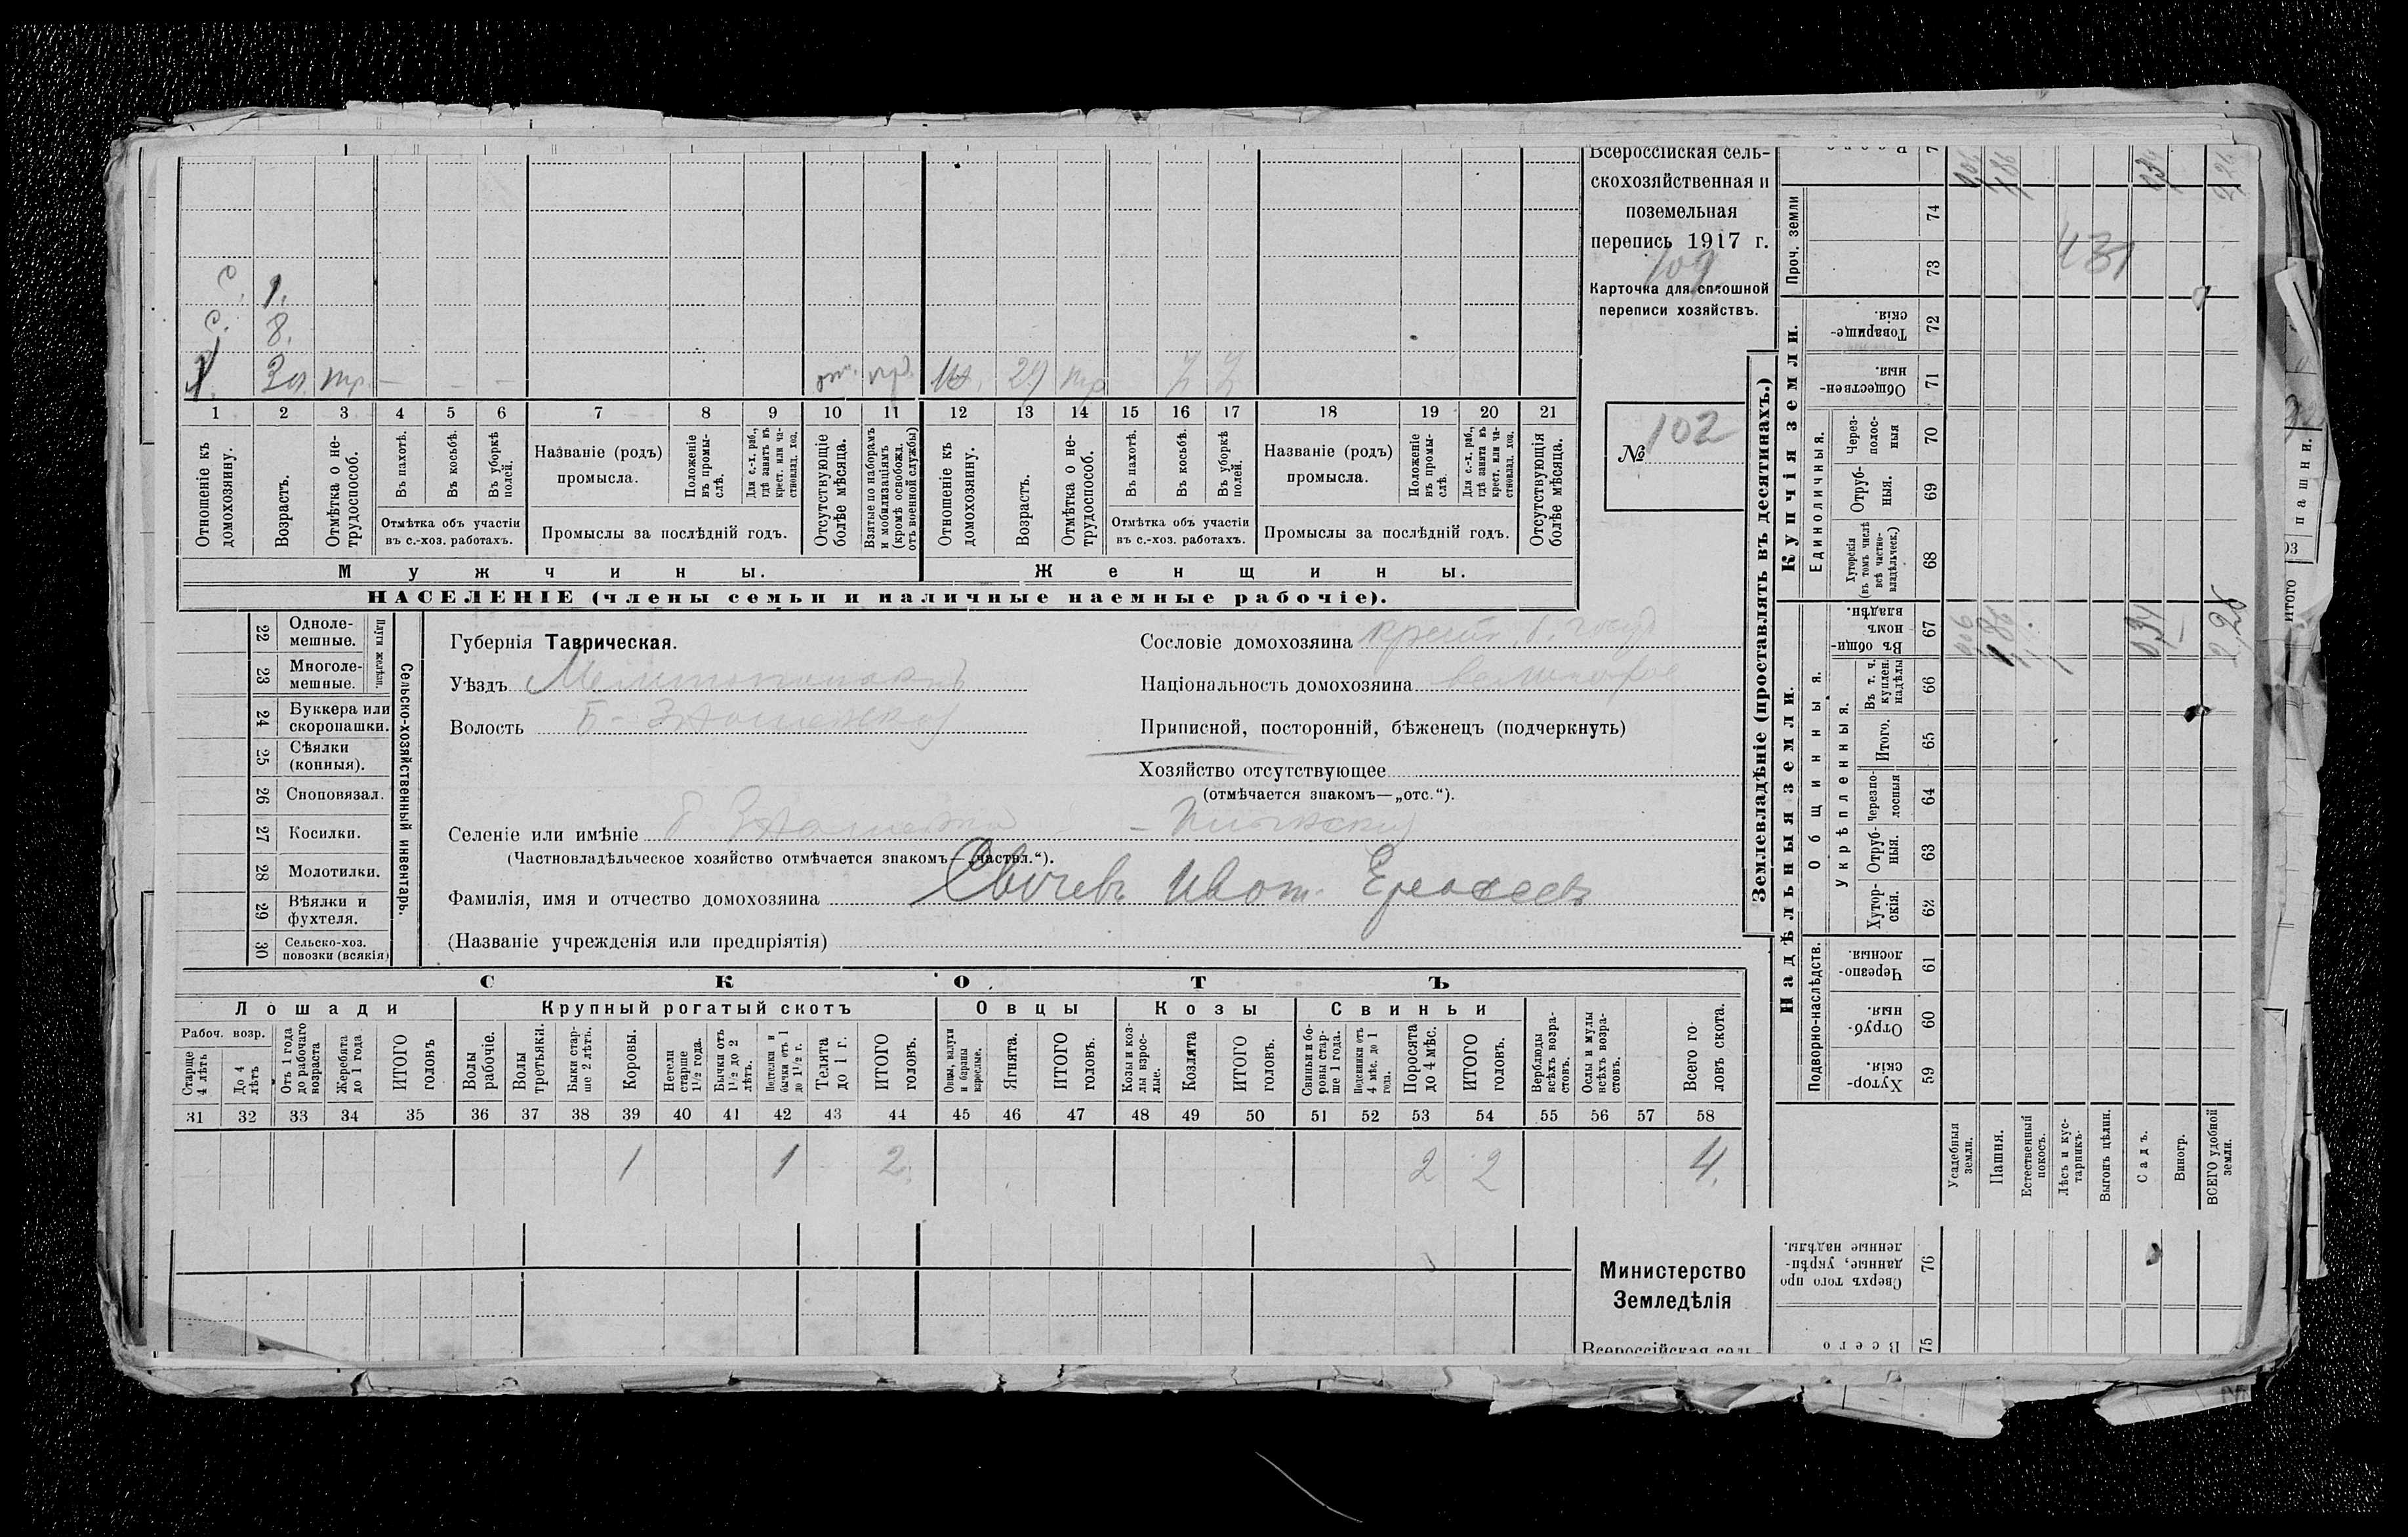 Всероссійская сель-
скохозяйственная и
поземельная
перепись 1917 г.
109
Карточка для сплошной
переписи хозяйствъ.
№ 102
с. 1.
с. 8.
тр. — — —
тр
1 2 3 4 5 6 7 8 9 10 11 12 13 14 15 16 17 18 19 20 21
Отношеніе къ домохозяину.
Возрастъ.
Отмѣтка о не-трудоспособ.
Въ пахотѣ.
Въ косьбѣ.
Въ уборкѣ полей.
Отмѣтка объ участіи
въ с.-хоз. работахъ.
Названіе (родъ)
промысла.
Положеніе въ промы-слѣ.
Для с.-х. раб., гдѣ занятъ въ крест. или ча-стновлад. хоз.
Промыслы за послѣдній годъ.
Отсутствующіе болѣе мѣсяца.
Взятые по наборамъ и мобилизаціямъ (кромѣ освобожд. отъ военной службы)
Отношеніе къ домохозяину.
Возрастъ.
Отмѣтка о не-трудоспособ.
Въ пахотѣ.
Въ косьбѣ.
Въ уборкѣ полей.
Отмѣтка объ участіи
въ с.-хоз. работахъ.
Названіе (родъ)
промысла.
Положеніе въ промы-слѣ.
Для с.-х. раб., гдѣ занята въ крест. или ча-стновлад. хоз.
Промыслы за послѣдній годъ.
Отсутствующія болѣе мѣсяца.
Мужчины.
Женщины.
НАСЕЛЕНІЕ (члены семьи и наличные наемные рабочіе).
Сельско-хозяйственный инвентарь.
Плуги желѣзн.
22 Одноле-мешные.
23 Многоле-мешные.
24 Буккера или скоропашки.
25 Сѣялки (конныя).
26 Сноповязал.
27 Косилки.
28 Молотилки.
29 Вѣялки и фухтеля.
30 Сельско-хоз. повозки (всякія)
Губернія Таврическая.
Уѣздъ Мелитопольскъ
Волость
Сословіе домохозяина
Національность домохозяина
Приписной, посторонній, бѣженецъ (подчеркнуть)
Хозяйство отсутствующее
(отмѣчается знакомъ—„отс.“).
Селеніе или имѣніе
(Частновладѣльческое хозяйство отмѣчается знакомъ—„частвл.“).
Фамилія, имя и отчество домохозяина
(Названіе учрежденія или предпріятія)
СКОТЪ
Лошади
Крупный рогатый скотъ
Овцы
Козы
Свиньи
Рабоч. возр.
Старше 4 лѣтъ
До 4 лѣтъ
Отъ 1 года до рабочаго возраста
Жеребята до 1 года
ИТОГО головъ
Волы рабочіе.
Волы третьяки.
Быки стар-ше 2 лѣтъ.
Коровы.
Нетели старше 1½ года.
Бычки отъ 1½ до 2 лѣтъ.
Подтелки и бычки отъ 1 до 1½ г.
Телята до 1 г.
ИТОГО головъ.
Овцы, валухи и бараны взрослые.
Ягнята.
ИТОГО головъ.
Козы и коз-лы взрос-лые.
Козлята
ИТОГО головъ.
Свиньи и бо-ровы стар-ше 1 года.
Подсвинки отъ 4 мѣс. до 1 года.
Поросята до 4 мѣс.
ИТОГО головъ.
Верблюды всѣхъ возра-стовъ.
Ослы и мулы всѣхъ возра-стовъ.
Всего го-ловъ скота.
31 32 33 34 35 36 37 38 39 40 41 42 43 44 45 46 47 48 49 50 51 52 53 54 55 56 57 58
1 1 2. 2 2 4.
Министерство
Земледѣлія
Всероссійская сель-
Землевладѣніе (проставлять въ десятинахъ.)
Надѣльныя земли.
Купчія земли.
Проч. земли
Подворно-наслѣдств.
Общинныя.
Укрѣпленныя.
Единоличныя.
59 Хутор-скія.
60 Отруб-ныя.
61 Черезпо-лосныя
62 Хутор-скія.
63 Отруб-ныя.
64 Черезпо-лосныя
65 Итого.
66 Въ т. ч. куплен. надѣлы
67 Въ общин-номъ владѣн.
68 Хуторскія (въ томъ числѣ всѣ частно-владѣльческ.)
69 Отруб-ныя.
70 Через-полос-ныя
71 Обществен-ныя.
72 Товарище-скія.
73
74
75 Всего
76 Сверхъ того про данные, укрѣп-ленные надѣлы.
Усадебныя земли.
Пашня.
Естественный покосъ.
Лѣсъ и кус-тарникъ.
Выгонъ цѣлин.
Садъ.
Виногр.
ВСЕГО удобной земли.
1,86
0,34
2,26
431
пашни.
итого